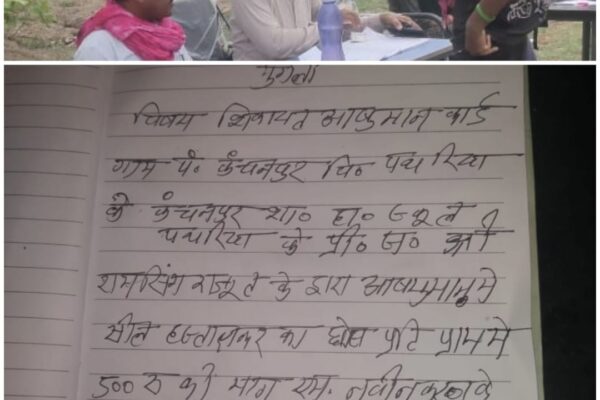 मुंगेली
विषय शिकायत आयुष्मान कार्ड
ग्राम पं० कंचनपुर वि० पथरिया
के कंचनपुर शा० हा० स्कूल
पथरिया के प्री० ज० श्री
रामसिंग राजूत के द्वारा आयुष्मान मे
सील हस्ताक्षर का प्रति फ्राम मे
500 रु की मांग एम. नवीन करण के